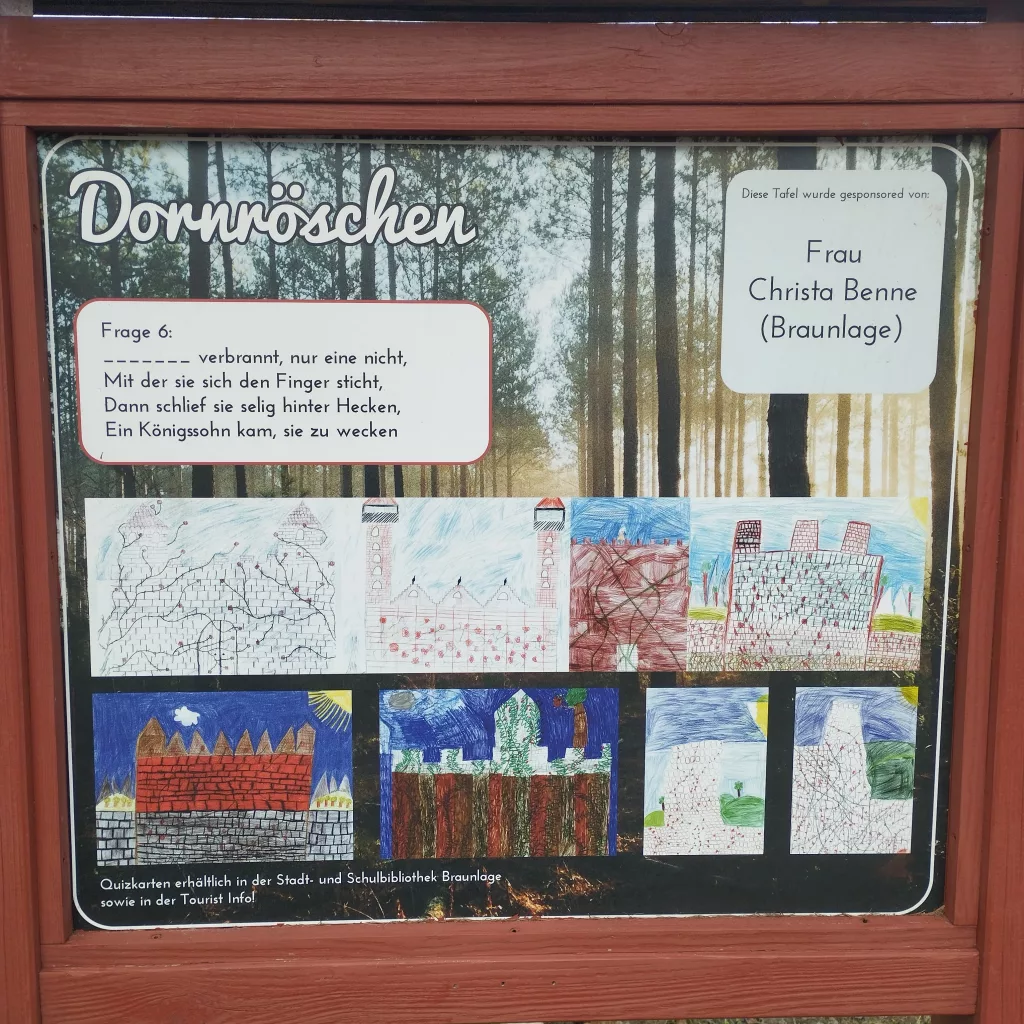 Dornröschen
Diese Tafel wurde gesponsored von:
Frau
Christa Benne
(Braunlage)
Frage 6:
_______ verbrannt, nur eine nicht,
Mit der sie sich den Finger sticht,
Dann schlief sie selig hinter Hecken,
Ein Königssohn kam, sie zu wecken
Quizkarten erhältlich in der Stadt- und Schulbibliothek Braunlage
sowie in der Tourist Info!